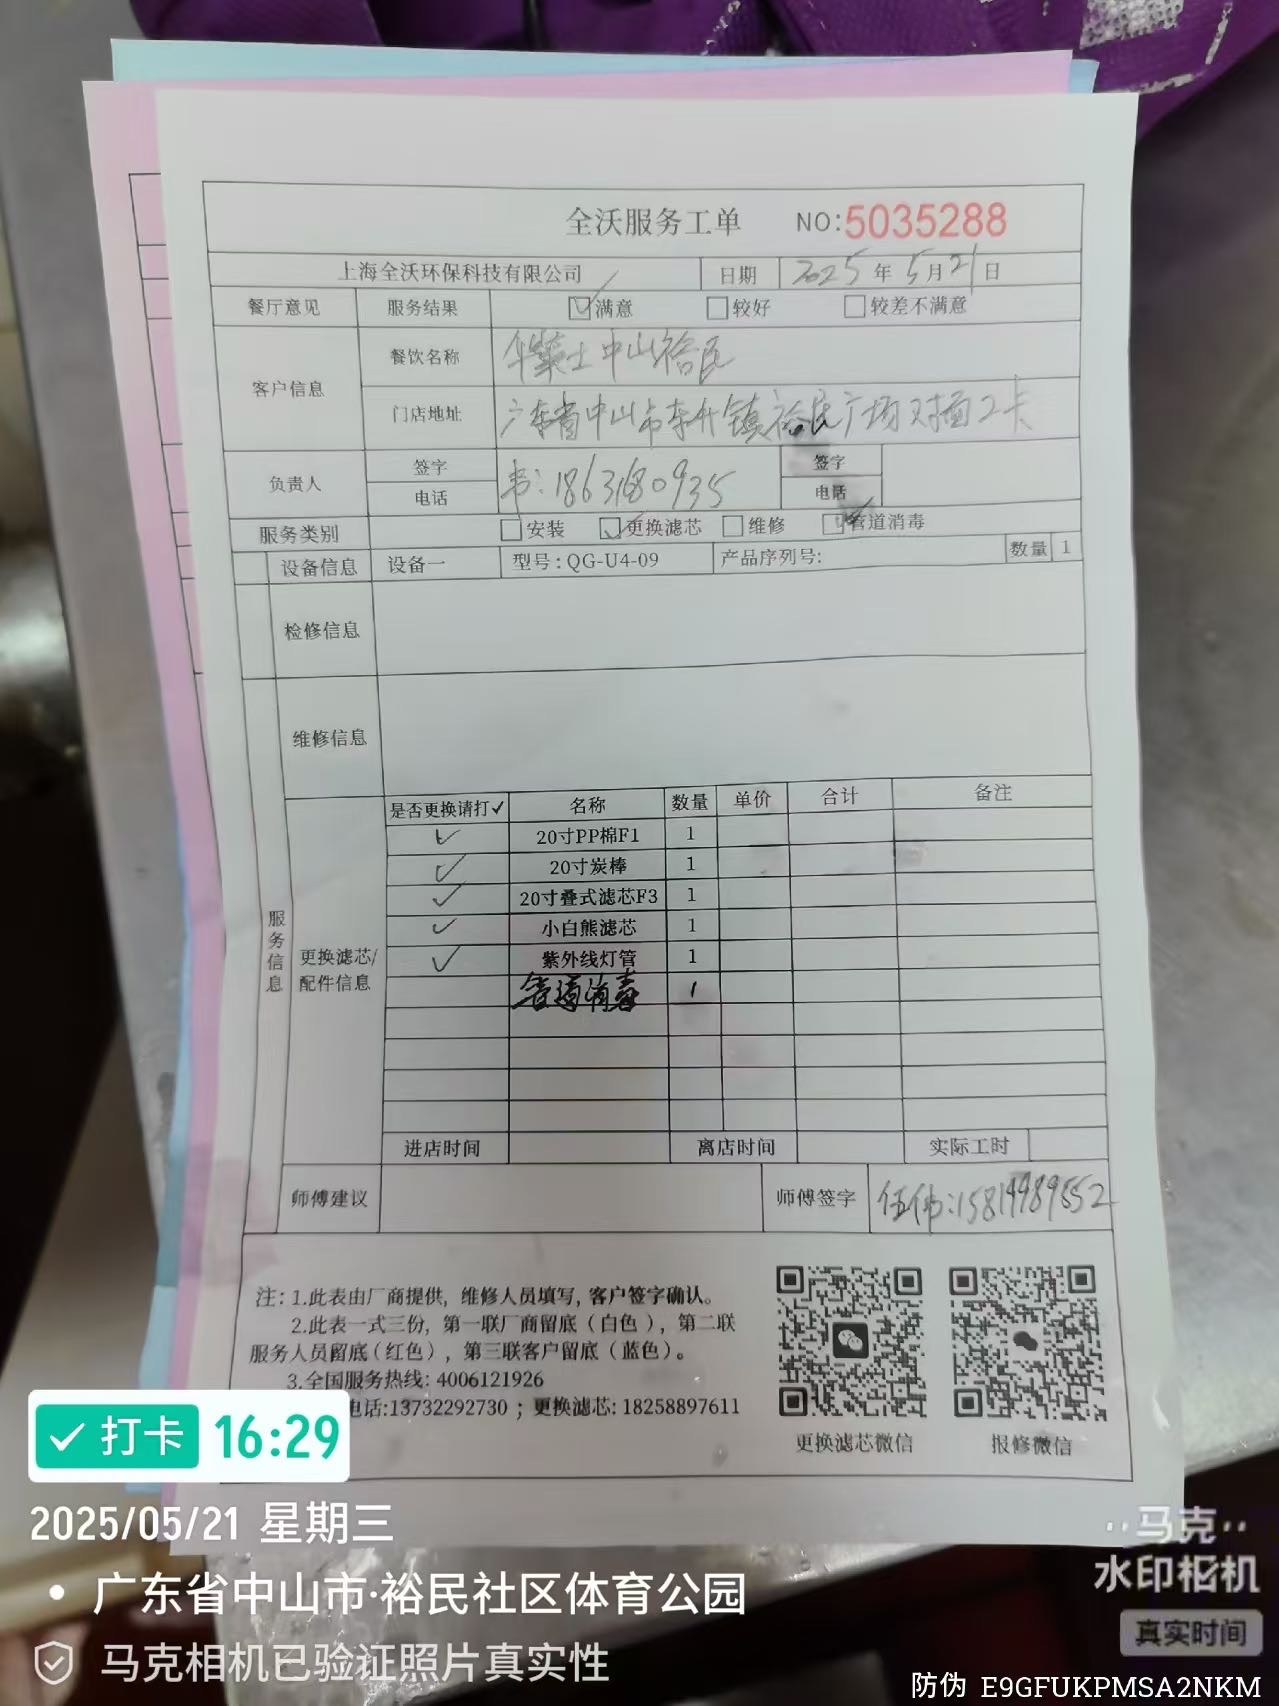 全沃服务工单 NO:5035288
上海全沃环保科技有限公司 日期 2025年5月21日
餐厅意见 服务结果 ☑满意 □较好 □较差不满意
客户信息 餐饮名称 华莱士中山裕民
门店地址 广东省中山市东升镇裕民广场对面2卡
负责人 签字 电话 韦:18631680935 签字 电话
服务类别 □安装 ☑更换滤芯 □维修 ☑管道消毒
设备信息 设备一 型号:QG-U4-09 产品序列号: 数量 1
检修信息
维修信息
服务信息
更换滤芯/配件信息
是否更换请打✓ 名称 数量 单价 合计 备注
✓ 20寸PP棉F1 1
✓ 20寸炭棒 1
✓ 20寸叠式滤芯F3 1
✓ 小白熊滤芯 1
✓ 紫外线灯管 1
管道消毒 1
进店时间 离店时间 实际工时
师傅建议 师傅签字 伍伟:15819989552
注: 1.此表由厂商提供, 维修人员填写, 客户签字确认。
2.此表一式三份, 第一联厂商留底(白色), 第二联
服务人员留底(红色), 第三联客户留底(蓝色)。
3.全国服务热线: 4006121926
电话:13732292730 ; 更换滤芯: 18258897611
更换滤芯微信 报修微信
✓打卡 16:29
2025/05/21 星期三
• 广东省中山市·裕民社区体育公园
马克相机已验证照片真实性
马克
水印相机
真实时间
防伪 E9GFUKPMSA2NKM